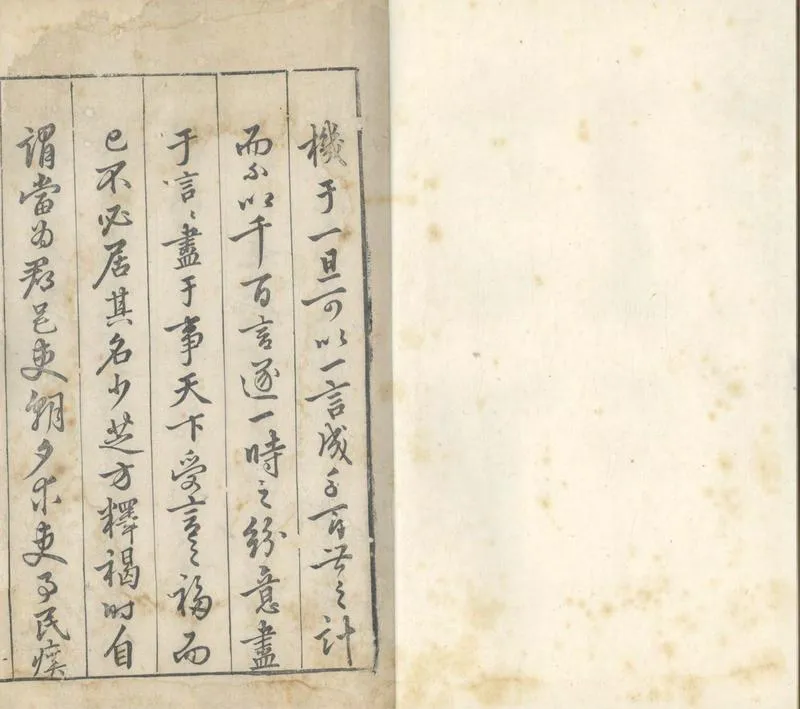 機于一旦可以一言成千百世之計
而不以千百言遂一時之紛意盡
于言言盡于事天下受言之福而
已不必居其名少芝方釋褐時自
謂當为郡邑吏朝夕求吏事民瘼